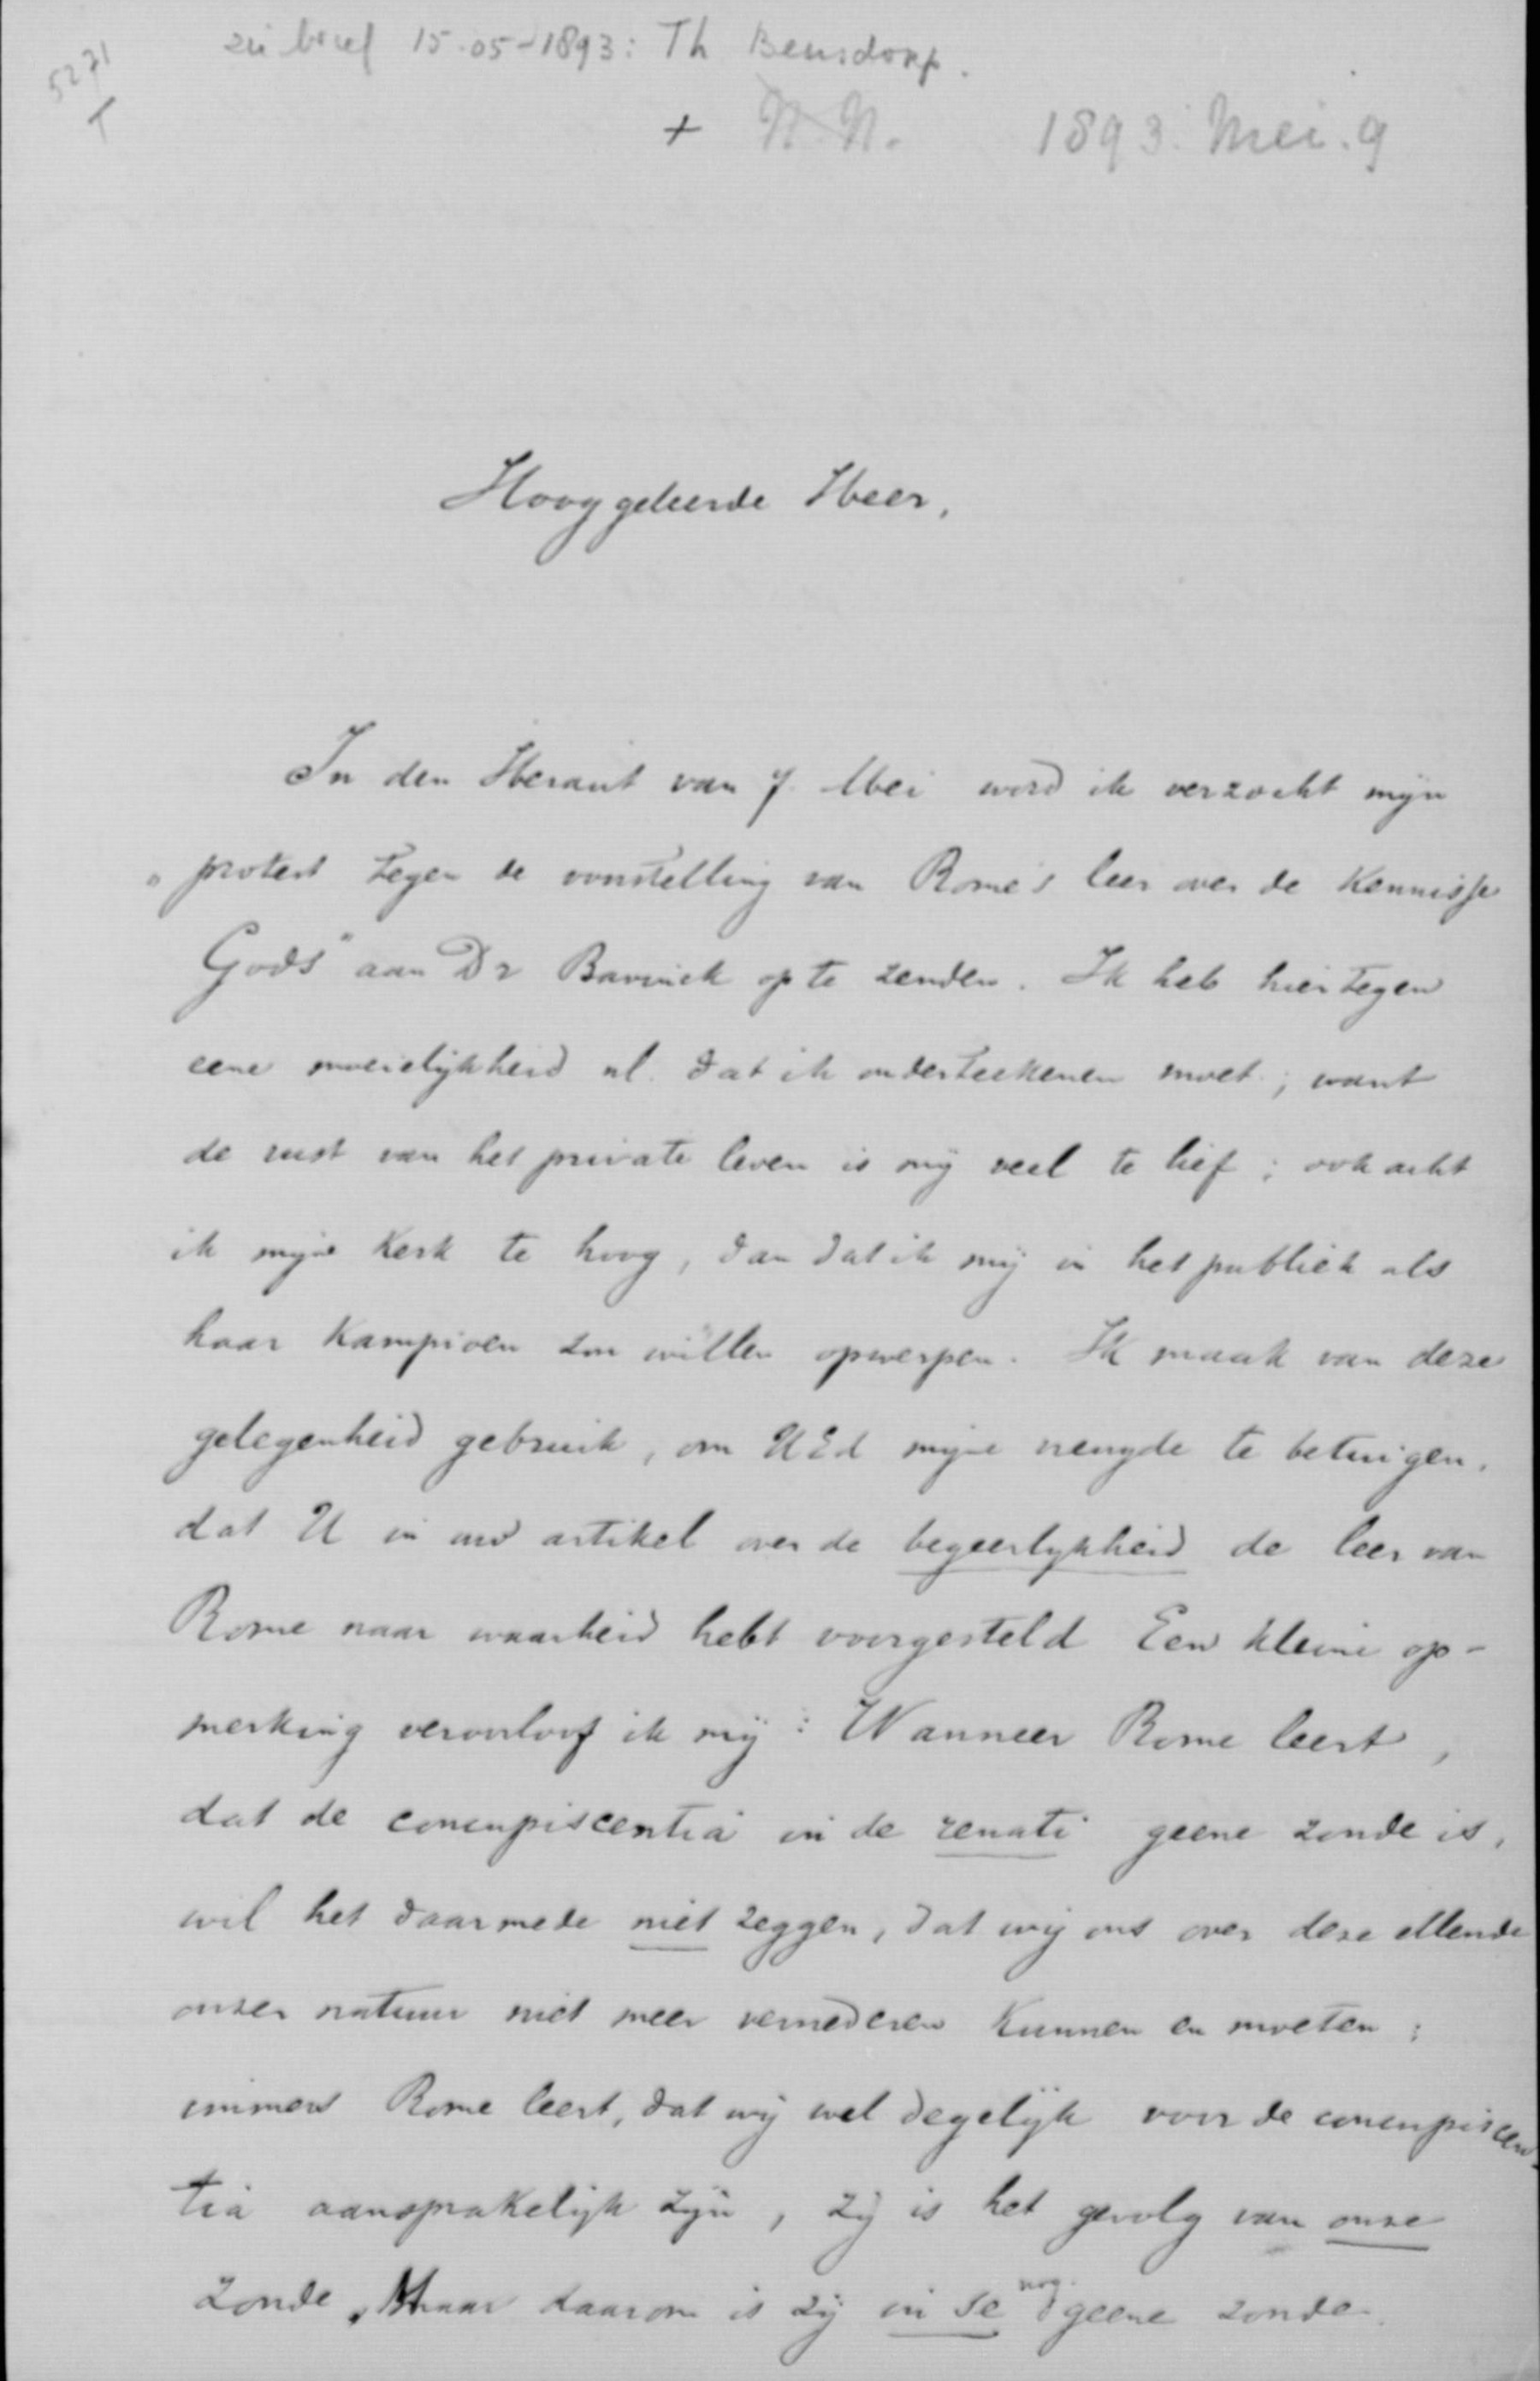 zie brief 15-05-1893: Th Bensdorp.
5271
T
+ N.N. 1893. Mei. 9
Hooggeleerde Heer,
In den Heraut van 7. Mei word ik verzocht mijn
„protest tegen de voorstelling van Rome's leer over de kennisse
Gods" aan Dr Bavinck op te zenden. Ik heb hiertegen
eene moeielijkheid nl. dat ik onderteekenen moet; want
de rust van het private leven is mij veel te lief; ook acht
ik mijne Kerk te hoog, dan dat ik mij in het publiek als
haar Kampioen zou willen opwerpen. Ik maak van deze
gelegenheid gebruik, om UEd mijne vreugde te betuigen,
dat U in uw artikel over de begeerlijkheid de leer van
Rome naar waarheid hebt voorgesteld Een kleine op-
merking veroorloof ik mij: Wanneer Rome leert,
dat de concupiscentia in de renati geene zonde is,
wil het daarmede niet zeggen, dat wij ons over deze ellende
onzer natuur niet meer vernederen kunnen en moeten;
immers Rome leert, dat wij wel degelijk voor de concupiscen-
tia aansprakelijk zijn, zij is het gevolg van onze
zonde, Maar daarom is zij in se nog geene zonde.